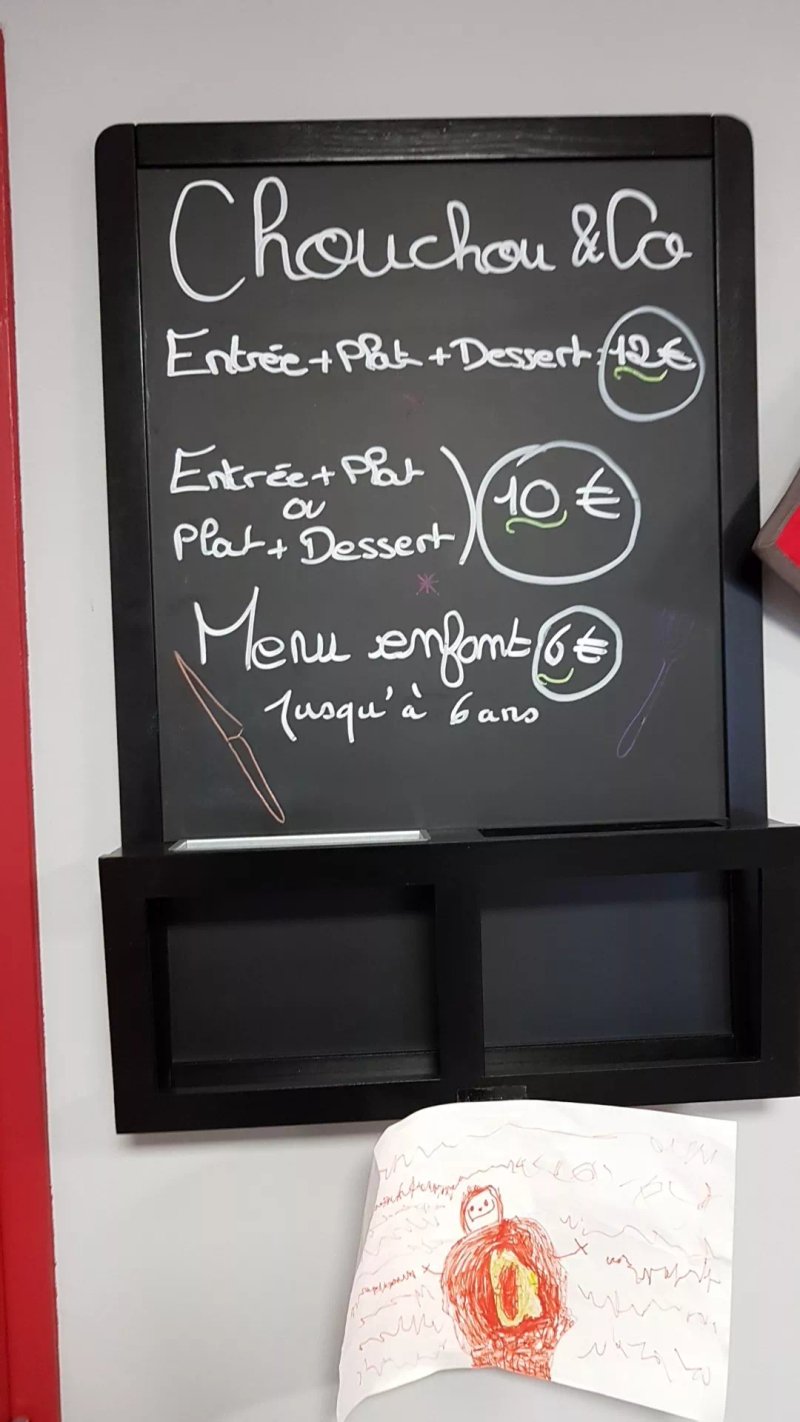 Chouchou & Co
Entrée + Plat + Dessert : 12 €
Entrée + Plat
ou
Plat + Dessert ) 10 €
Menu enfant 6 €
Jusqu'à 6 ans